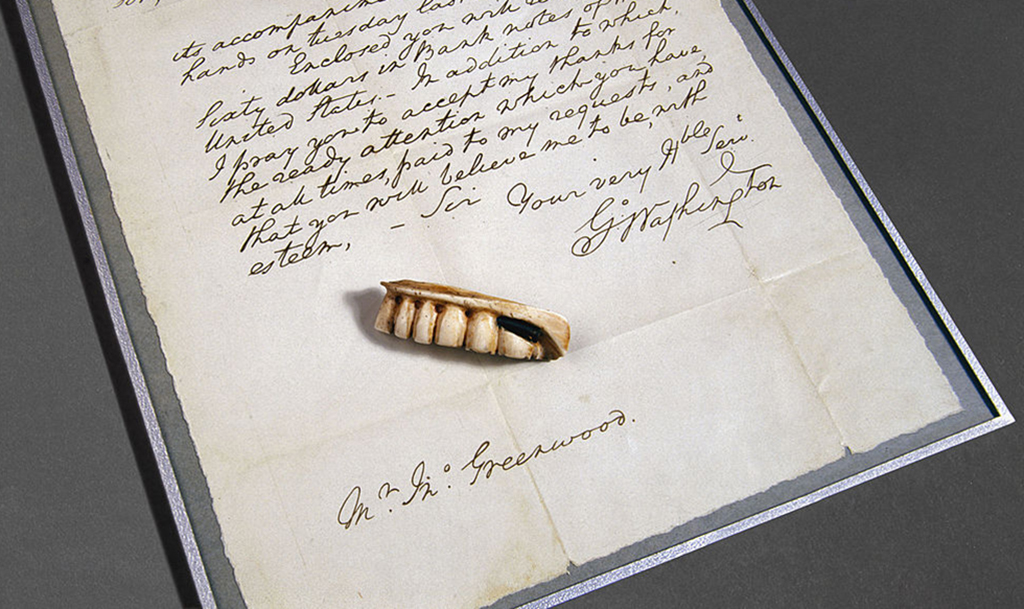 its accompanim
hands on Tuesday last
Enclosed you will
Sixty dollars in Bank notes of
United States.— In addition to which,
I pray you to accept my thanks for
the ready attention which you have,
at all times, paid to my requests, and
that you will believe me to be, with
esteem, — Sir Your very Hble Serv.
Go Washington
Mr. Jno. Greenwood.